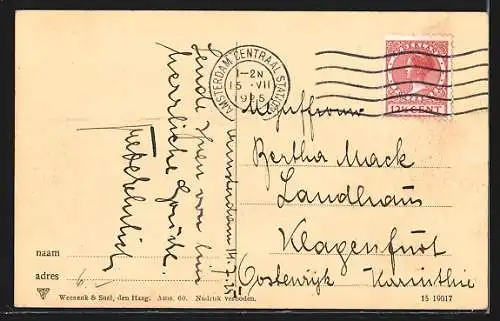 Sende Ihnen von hier
herrliche Grüße.
Amsterdam 14.7.25
AMSTERDAM CENTRAAL STATION
1-2N
15 · VII
1925
NEDERLAND
12½ CENT
Bertha Mack
Landhaus
Klagenfurt
Oostenrijk Karinthie
naam
adres
Weenenk & Snel, den Haag. Ams. 60. Nadruk verboden.
15 19017